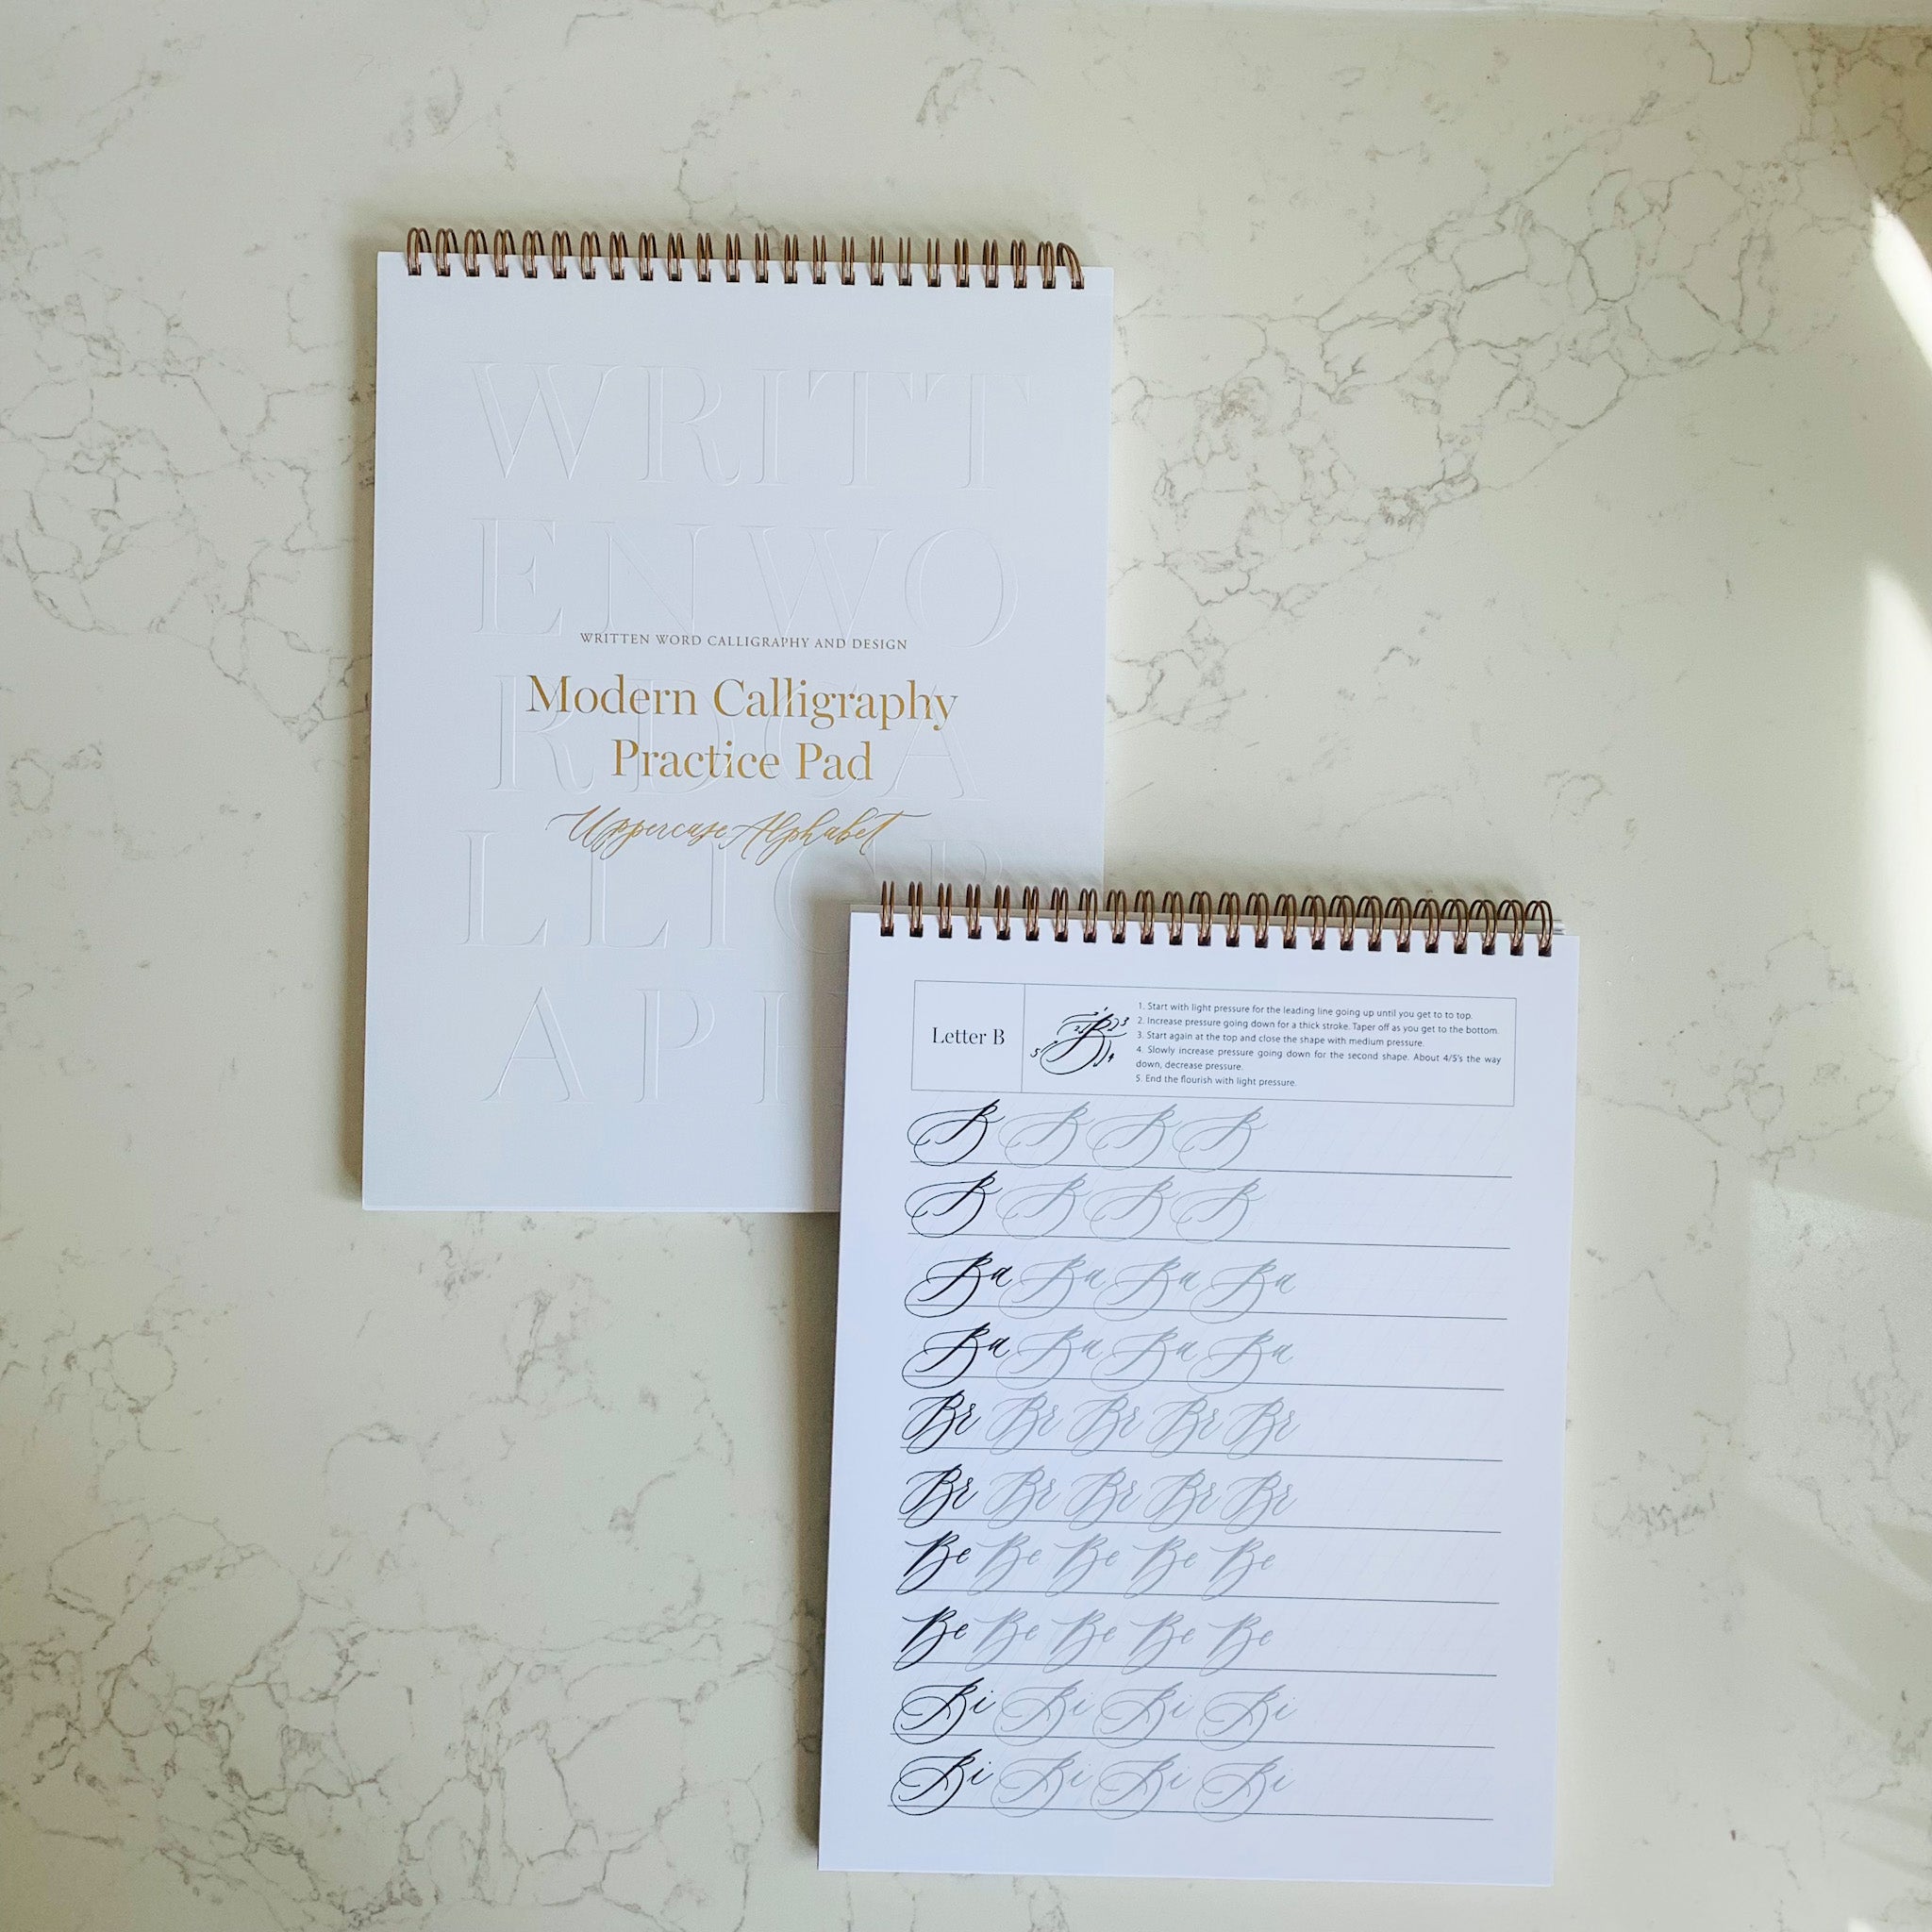 WRITT
ENWO
WRITTEN WORD CALLIGRAPHY AND DESIGN
Modern Calligraphy
Practice Pad
RDCA
Uppercase Alphabet
LLIGR
APH
Letter B
1. Start with light pressure for the leading line going up until you get to to top.
2. Increase pressure going down for a thick stroke. Taper off as you get to the bottom.
3. Start again at the top and close the shape with medium pressure.
4. Slowly increase pressure going down for the second shape. About 4/5's the way
down, decrease pressure.
5. End the flourish with light pressure.
B B B B
B B B B
Ba Ba Ba Ba
Ba Ba Ba Ba
Br Br Br Br Br
Br Br Br Br Br
Be Be Be Be Be
Be Be Be Be Be
Bi Bi Bi Bi
Bi Bi Bi Bi